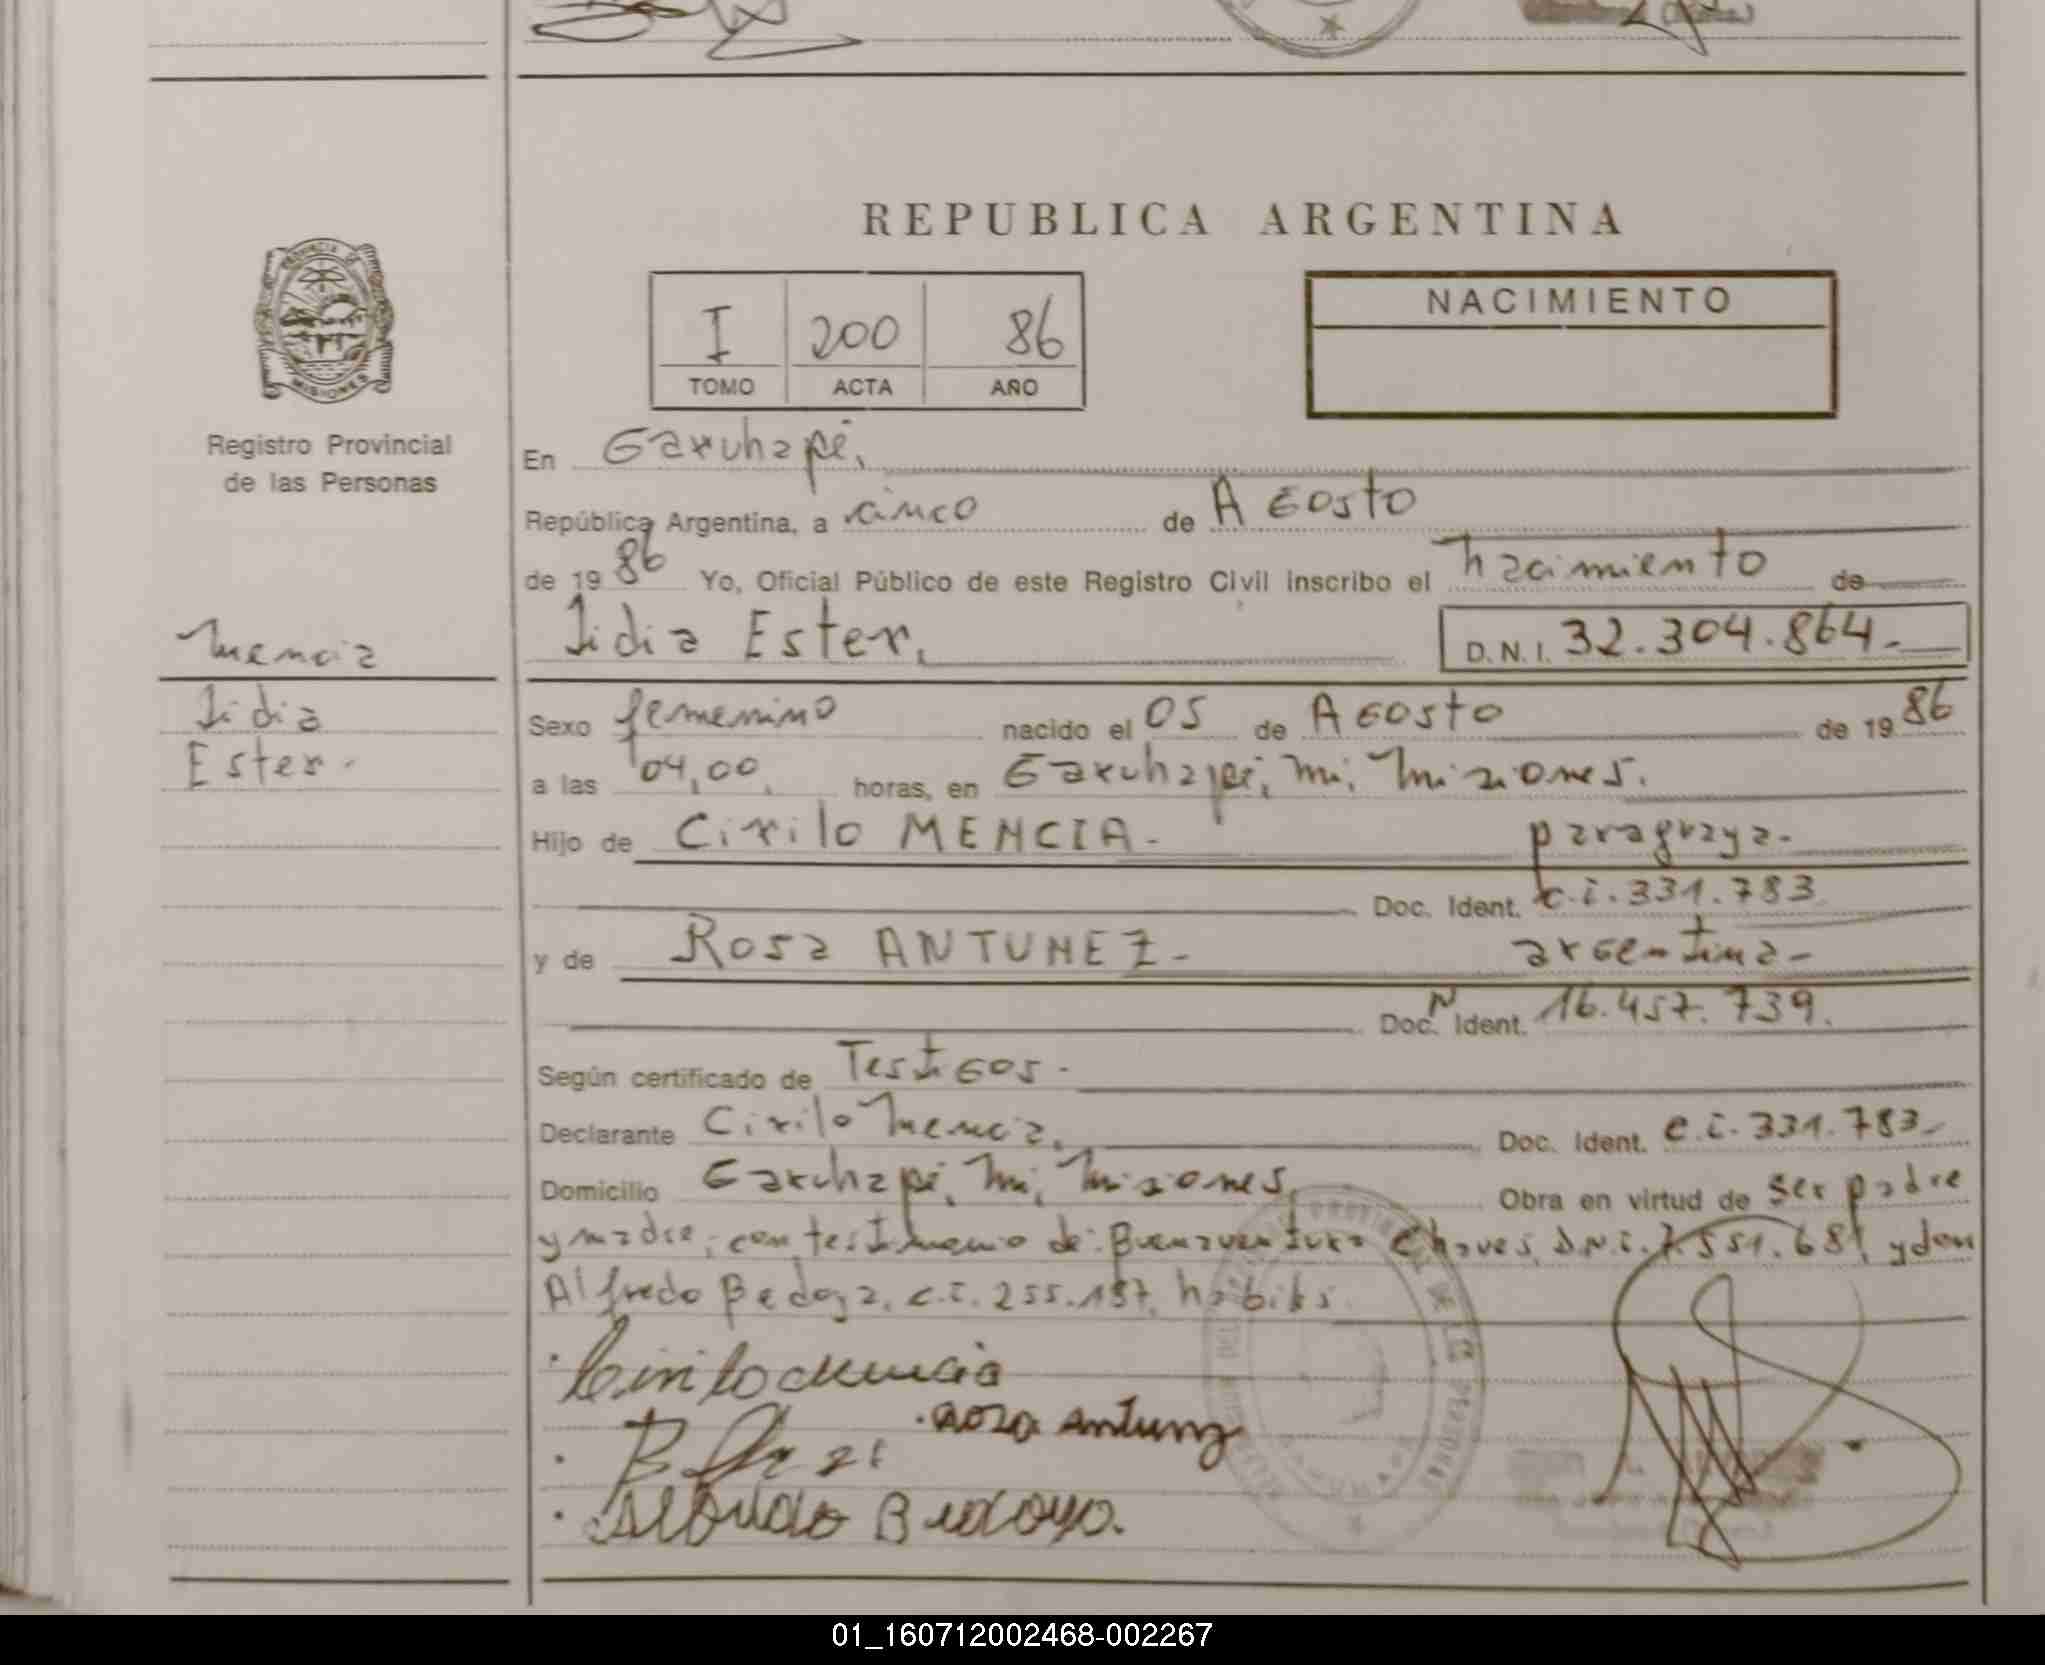 REPUBLICA ARGENTINA
PROVINCIA DE
MISIONES
I 200 86
TOMO ACTA AÑO
NACIMIENTO
Registro Provincial
de las Personas
En Garuhapé,
República Argentina, a cinco de AGosto
de 1986 Yo, Oficial Público de este Registro Civil inscribo el nacimiento de
Lidia Ester, D.N.I. 32.304.864.-
Mencia
Lidia
Ester.
Sexo femenino nacido el 05 de AGosto de 1986
a las 04,00, horas, en Garuhapé, Mi, Misiones.
Hijo de Cirilo MENCIA- paraguaya-
Doc. Ident. c.i. 331.783
y de Rosa ANTUNEZ- argentina-
Doc. Ident. N 16.457.739.
Según certificado de TestiGos.
Declarante Cirilo Mencia, Doc. Ident. c.i. 331.783-
Domicilio Garuhapé, Mi, Misiones, Obra en virtud de ser padre
y madre, con testimonio de: Buenaventura Chaves, D.N.i. 7.551.681, y don
Alfredo Bedoya, c.i. 255.157, habiles.
Cirilo Mencia
Rosa Antunez
Bedoya.
01_160712002468-002267